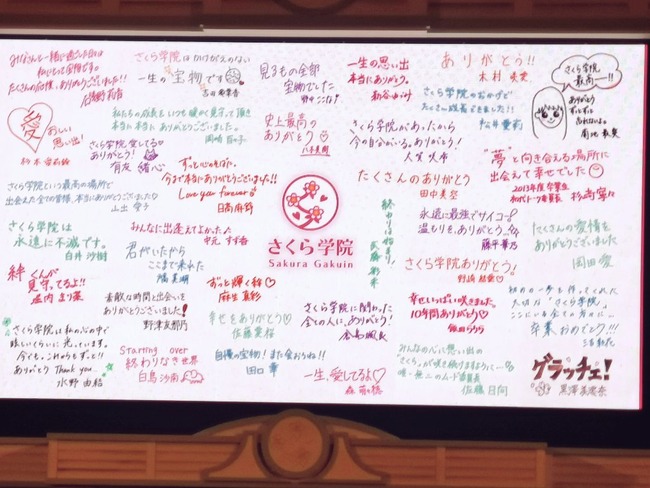 みなさんと一緒に過ごした日々は
私にとって宝物です。
たくさんの応援、ありがとうございました!!
さくら学院はかけがえのない
一生の宝物です
見るもの全部
宝物でした
一生の思い出
本当にありがとう。
ありがとう!!
さくら学院
最高ー!!
ありがとう
愛
おいしい
思い出!
私たちの成長をいつも暖かく見守って頂き
本当に本当にありがとうございました。
岡崎百々子
史上最高の
ありがとう
さくら学院のおかげで
たくさん成長できました!!
さくら学院愛してる
ありがとう!
有友緒心
ずっと心のそばに
今まで本当にありがとうございました!
Love you forever♡
日髙麻鈴
さくら学院があったから
今の自分がいる。ありがとう!
"夢"と向き合える場所に
出会えて幸せでした
2013年度卒業生
杉﨑寧々
さくら学院という最高の場所で
出会えた全ての皆様、本当にありがとうございました
たくさんのありがとう
田中美空
さくら学院は
永遠に不滅です。
白井沙樹
みんなに出逢えてよかった♪
中元すず香
君がいたから
ここまで来れた
さくら学院
Sakura Gakuin
終わりは始まり!
永遠に最強でサイコー!
温もりを、ありがとう。
藤平華乃
たくさんの愛情を
ありがとうございました
岡田愛
絆くんが
見守ってるよ!!
堀内まり菜
素敵な時間と出会いを
ありがとうございました!
野津友那乃
ずっと輝く絆♡
麻生真彩
さくら学院ありがとう!
野崎結愛♡
幸せをありがとう♡
佐藤愛桜
さくら学院に関わった
全ての人に、ありがとう!
幸せいっぱい咲きました。
10年間ありがとう♡
飯田らうら
大切な「さくら学院」。
ここにいる全ての方に…
卒業おめでとう!!!
さくら学院は私の心の中で
眩しいくらいに光っています。
今も、これからもずっと!!
ありがとう Thank you...
水野由結
Starting over
終わりなき世界
白鳥沙南
自慢の宝物!また会おうね!!
田口華
一生、愛してるよ♡
森萌々穂
みんなの心に思い出の
さくらが咲き続けますように…
佐藤日向
グラッチェ!
黒澤美澪奈